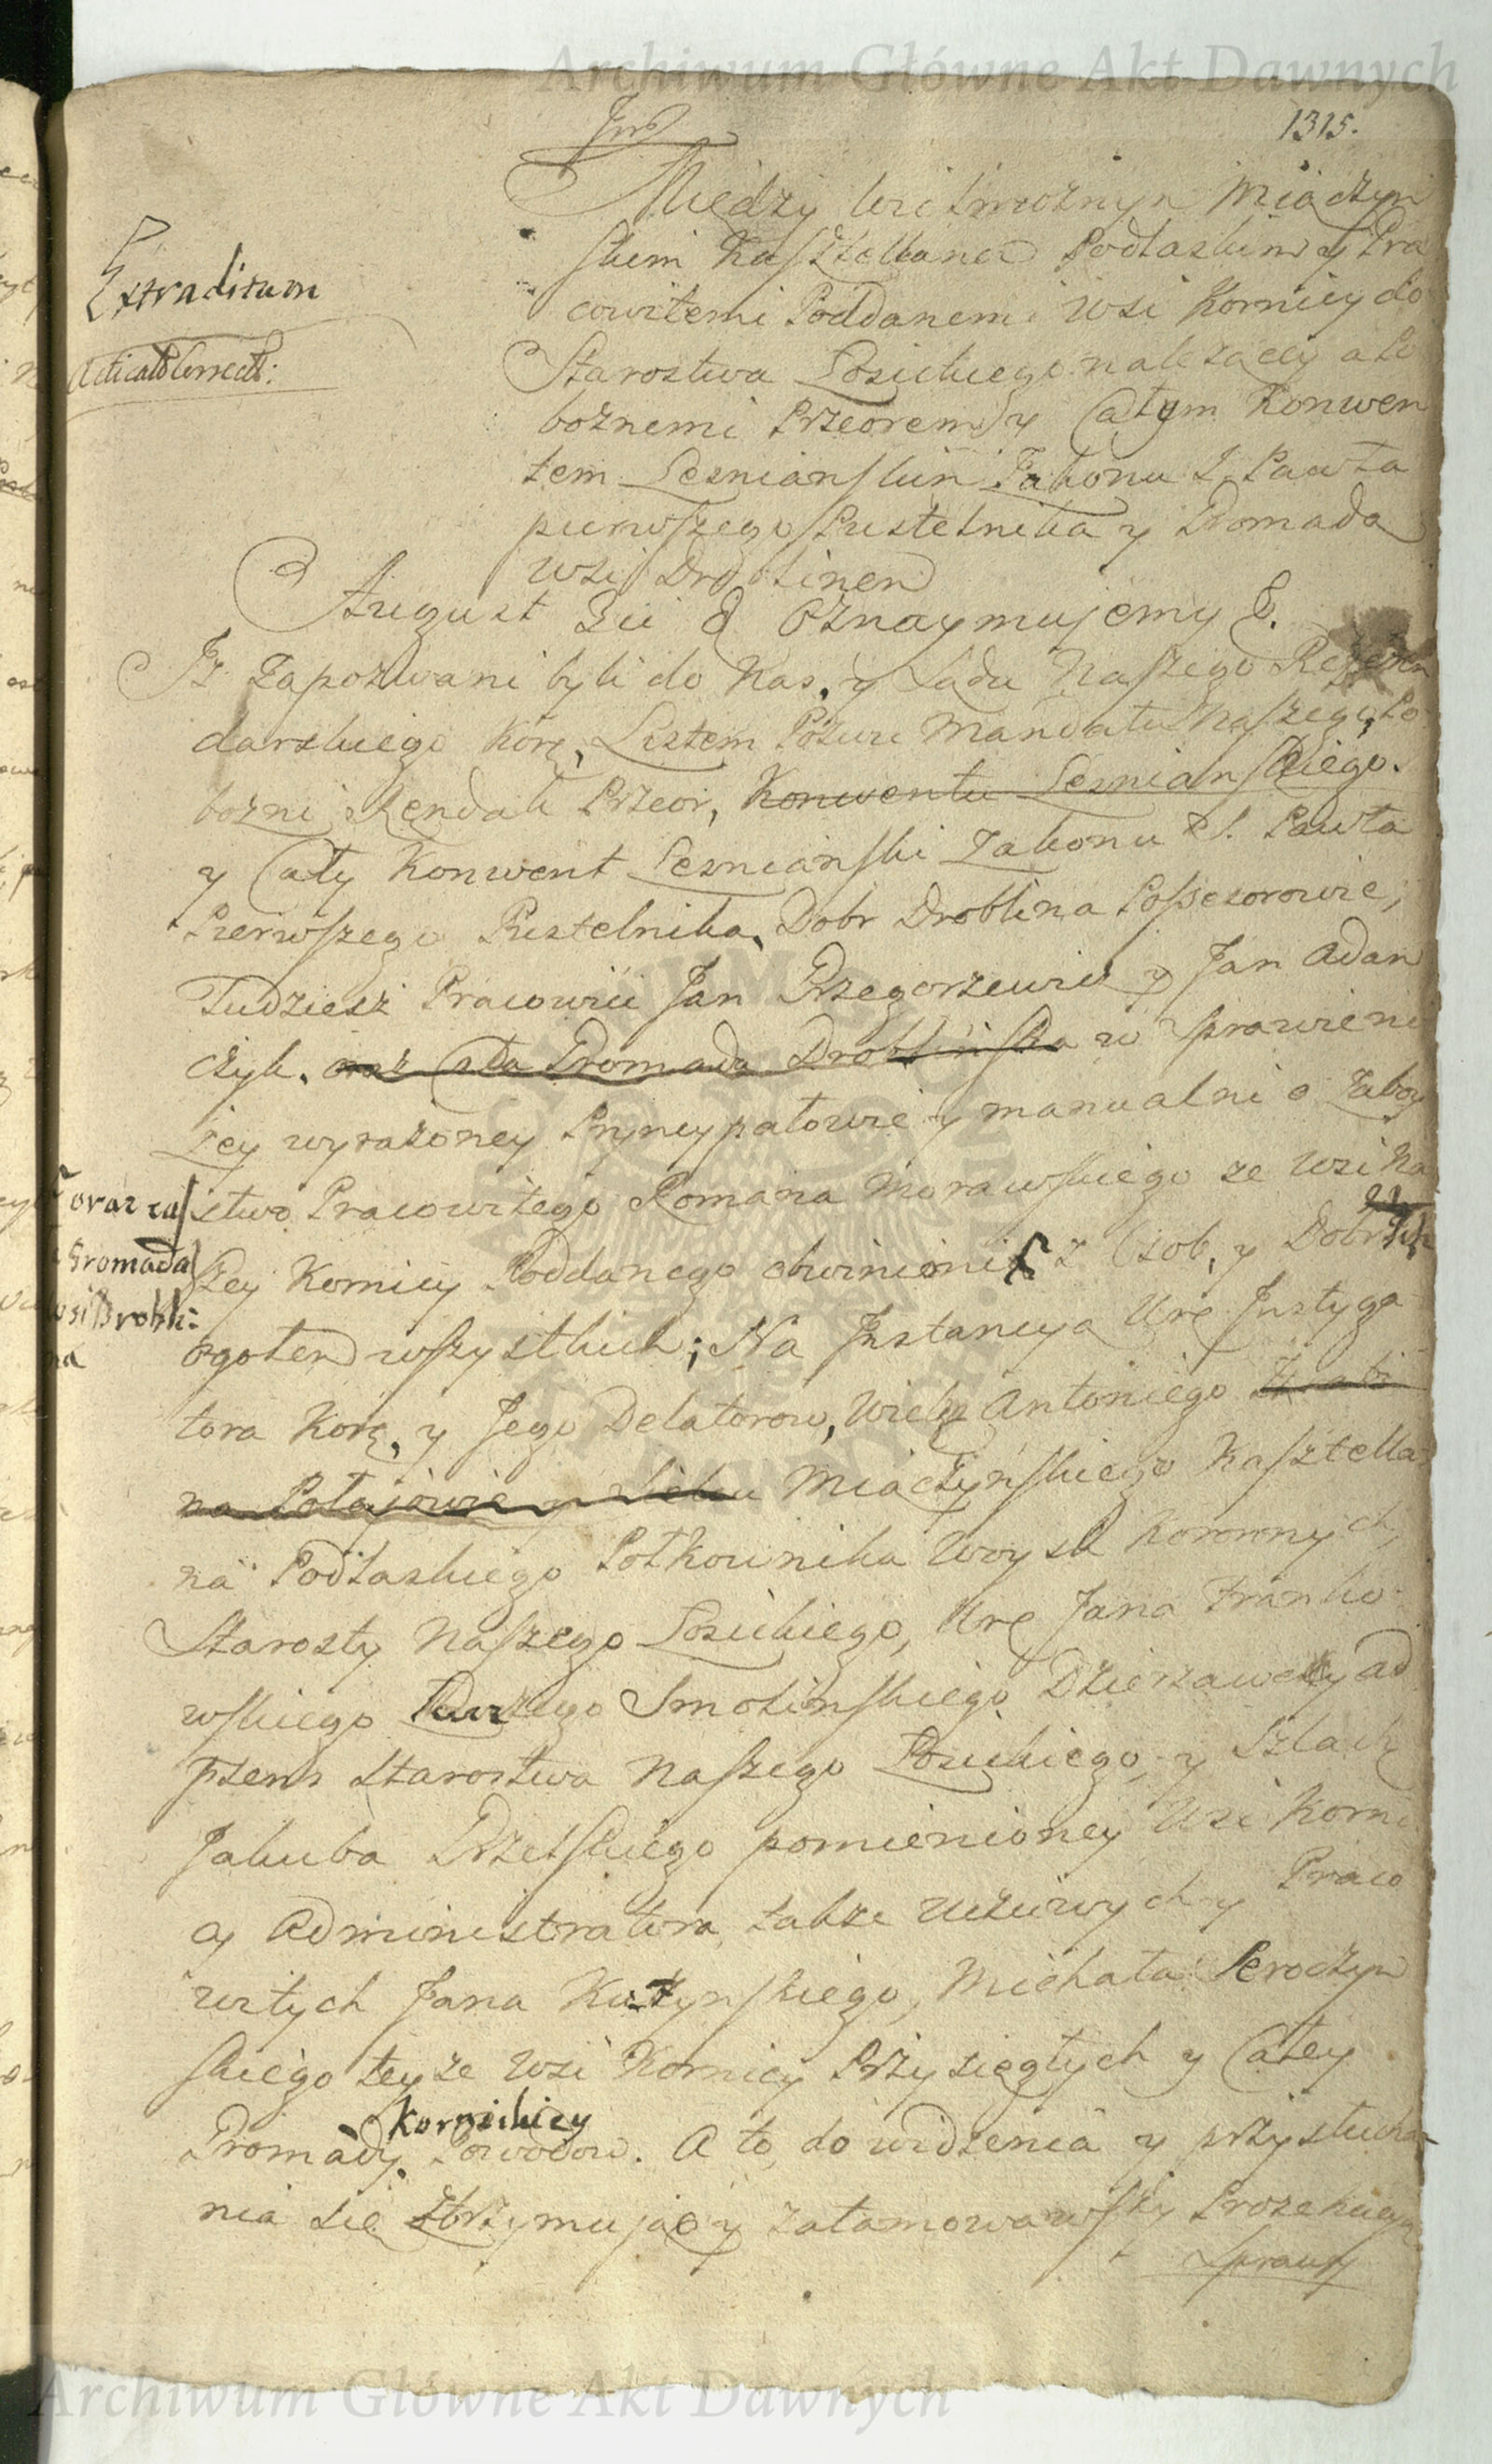 Archiwum Główne Akt Dawnych
1315.
Między Wielmożnym Miączyń
skim Kasztellanem Podlaskim y Pra
cowitemi Poddanemi Wsi Kornicy do
Extraditum
Starostwa Łosickiego należącey a Po
bożnemi Przeorem y Całym Konwen
tem Lesniańskim Zakonu S. Pawła
pierwszego Pustelnika y Gromadą
Wsi Droblinem
August III & Oznaymujemy &.
Iż Zapozwani byli do Nas, y Sądu Naszego Referen
darskiego Kor, Listem Pozwu Mandatu Naszego, Po
bożni Przeor, Konwentu Lesniańskiego.
y Cały Konwent Lesniański Zakonu S. Pawła
Pierwszego Pustelnika, Dobr Droblina Possesorowie,
Tudziesz Pracowici Jan Grzegorzewicz y Jan Adam
czyk, oraz Cała Gromada Droblińska w Sprawie ni
żey wyrażoney Pryncypałowie y manualni o Zaboy
oraz cał
stwo Pracowitego Romana Morawskiego ze Wsi Na
Gromada
szey Kornicy Poddanego obwinieni z Osob, y Dobr Ich
wsi Drobli:
na
ogołem wszystkich; Na Instancyą Ur Instyga
tora Kor, y Jego Delatorow, Wielg Antoniego
na Potajowie Miączyńskiego Kasztella
na Podlaskiego Połkownika Woysk Koronnych,
Starosty Naszego Łosickiego, Ur Jana Franko
wskiego Smolińskiego Dzierzawcy ad
psens Starostwa Naszego Łosickiego, y Szlach
Jakuba pomienioney Wsi Korni
cy Administratora, także Uczciwych y Praco
witych Jana Kużyńskiego, Michała Seroczyn
skiego teyże Wsi Kornicy Przysięgłych y Całey
Kornickiey
Gromady Powodow. A to, do widzenia y przysłucha
nia się y zatamowawszy Prozekucyą
Sprawy
Archiwum Główne Akt Dawnych